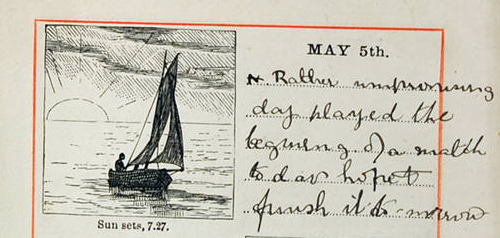 MAY 5th.
Rather unpromising
day played the
begining of a match
to day hope to
finish it to-morrow
Sun sets, 7.27.